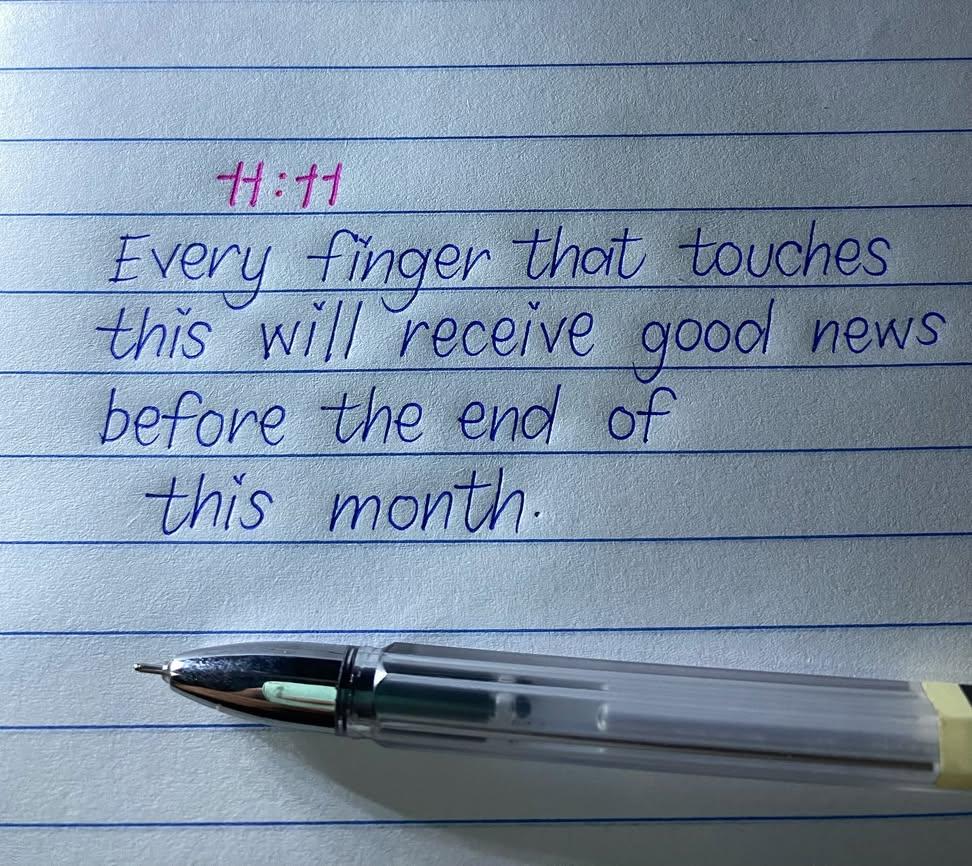 11:11
Every finger that touches
this will receive good news
before the end of
this month.